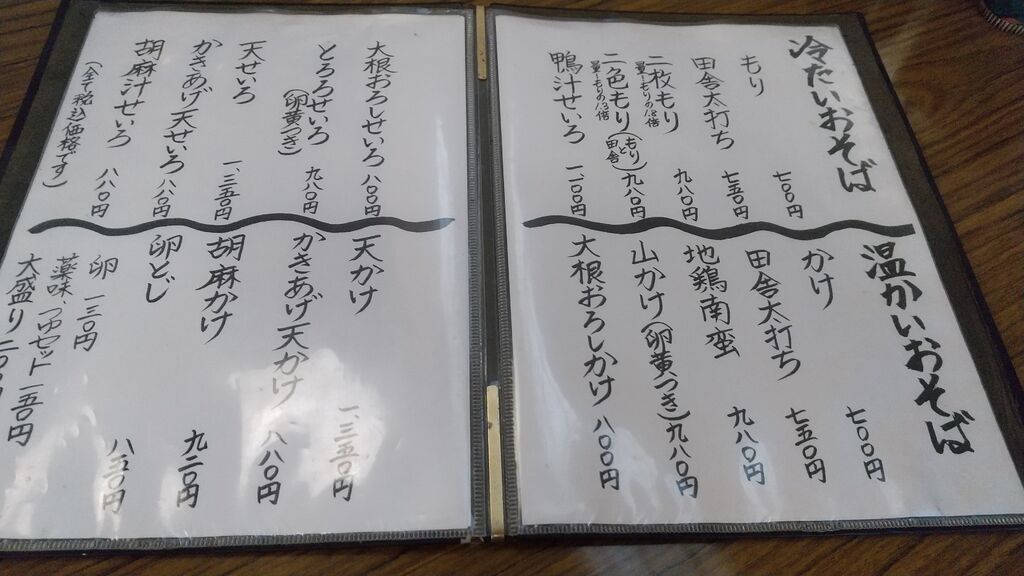 冷たいおそば
もり 七〇〇円
田舎太打ち 七五〇円
二枚もり 九八〇円
量…もりの1.8倍
二色もり(もりと田舎) 九八〇円
量…もりの1.8倍
鴨汁せいろ 一、一〇〇円
大根おろしせいろ 八〇〇円
とろろせいろ 九八〇円
(卵黄つき)
天せいろ 一、三五〇円
かきあげ天せいろ 八八〇円
胡麻汁せいろ 八八〇円
(全て税込価格です)
温かいおそば
かけ 七〇〇円
田舎太打ち 七五〇円
地鶏南蛮 九八〇円
山かけ(卵黄つき) 九八〇円
大根おろしかけ 八〇〇円
天かけ 一、三五〇円
かきあげ天かけ 八八〇円
胡麻かけ 九二〇円
卵とじ 八五〇円
卵 一三〇円
薬味、つゆセット 一五〇円
大盛り 二〇〇円